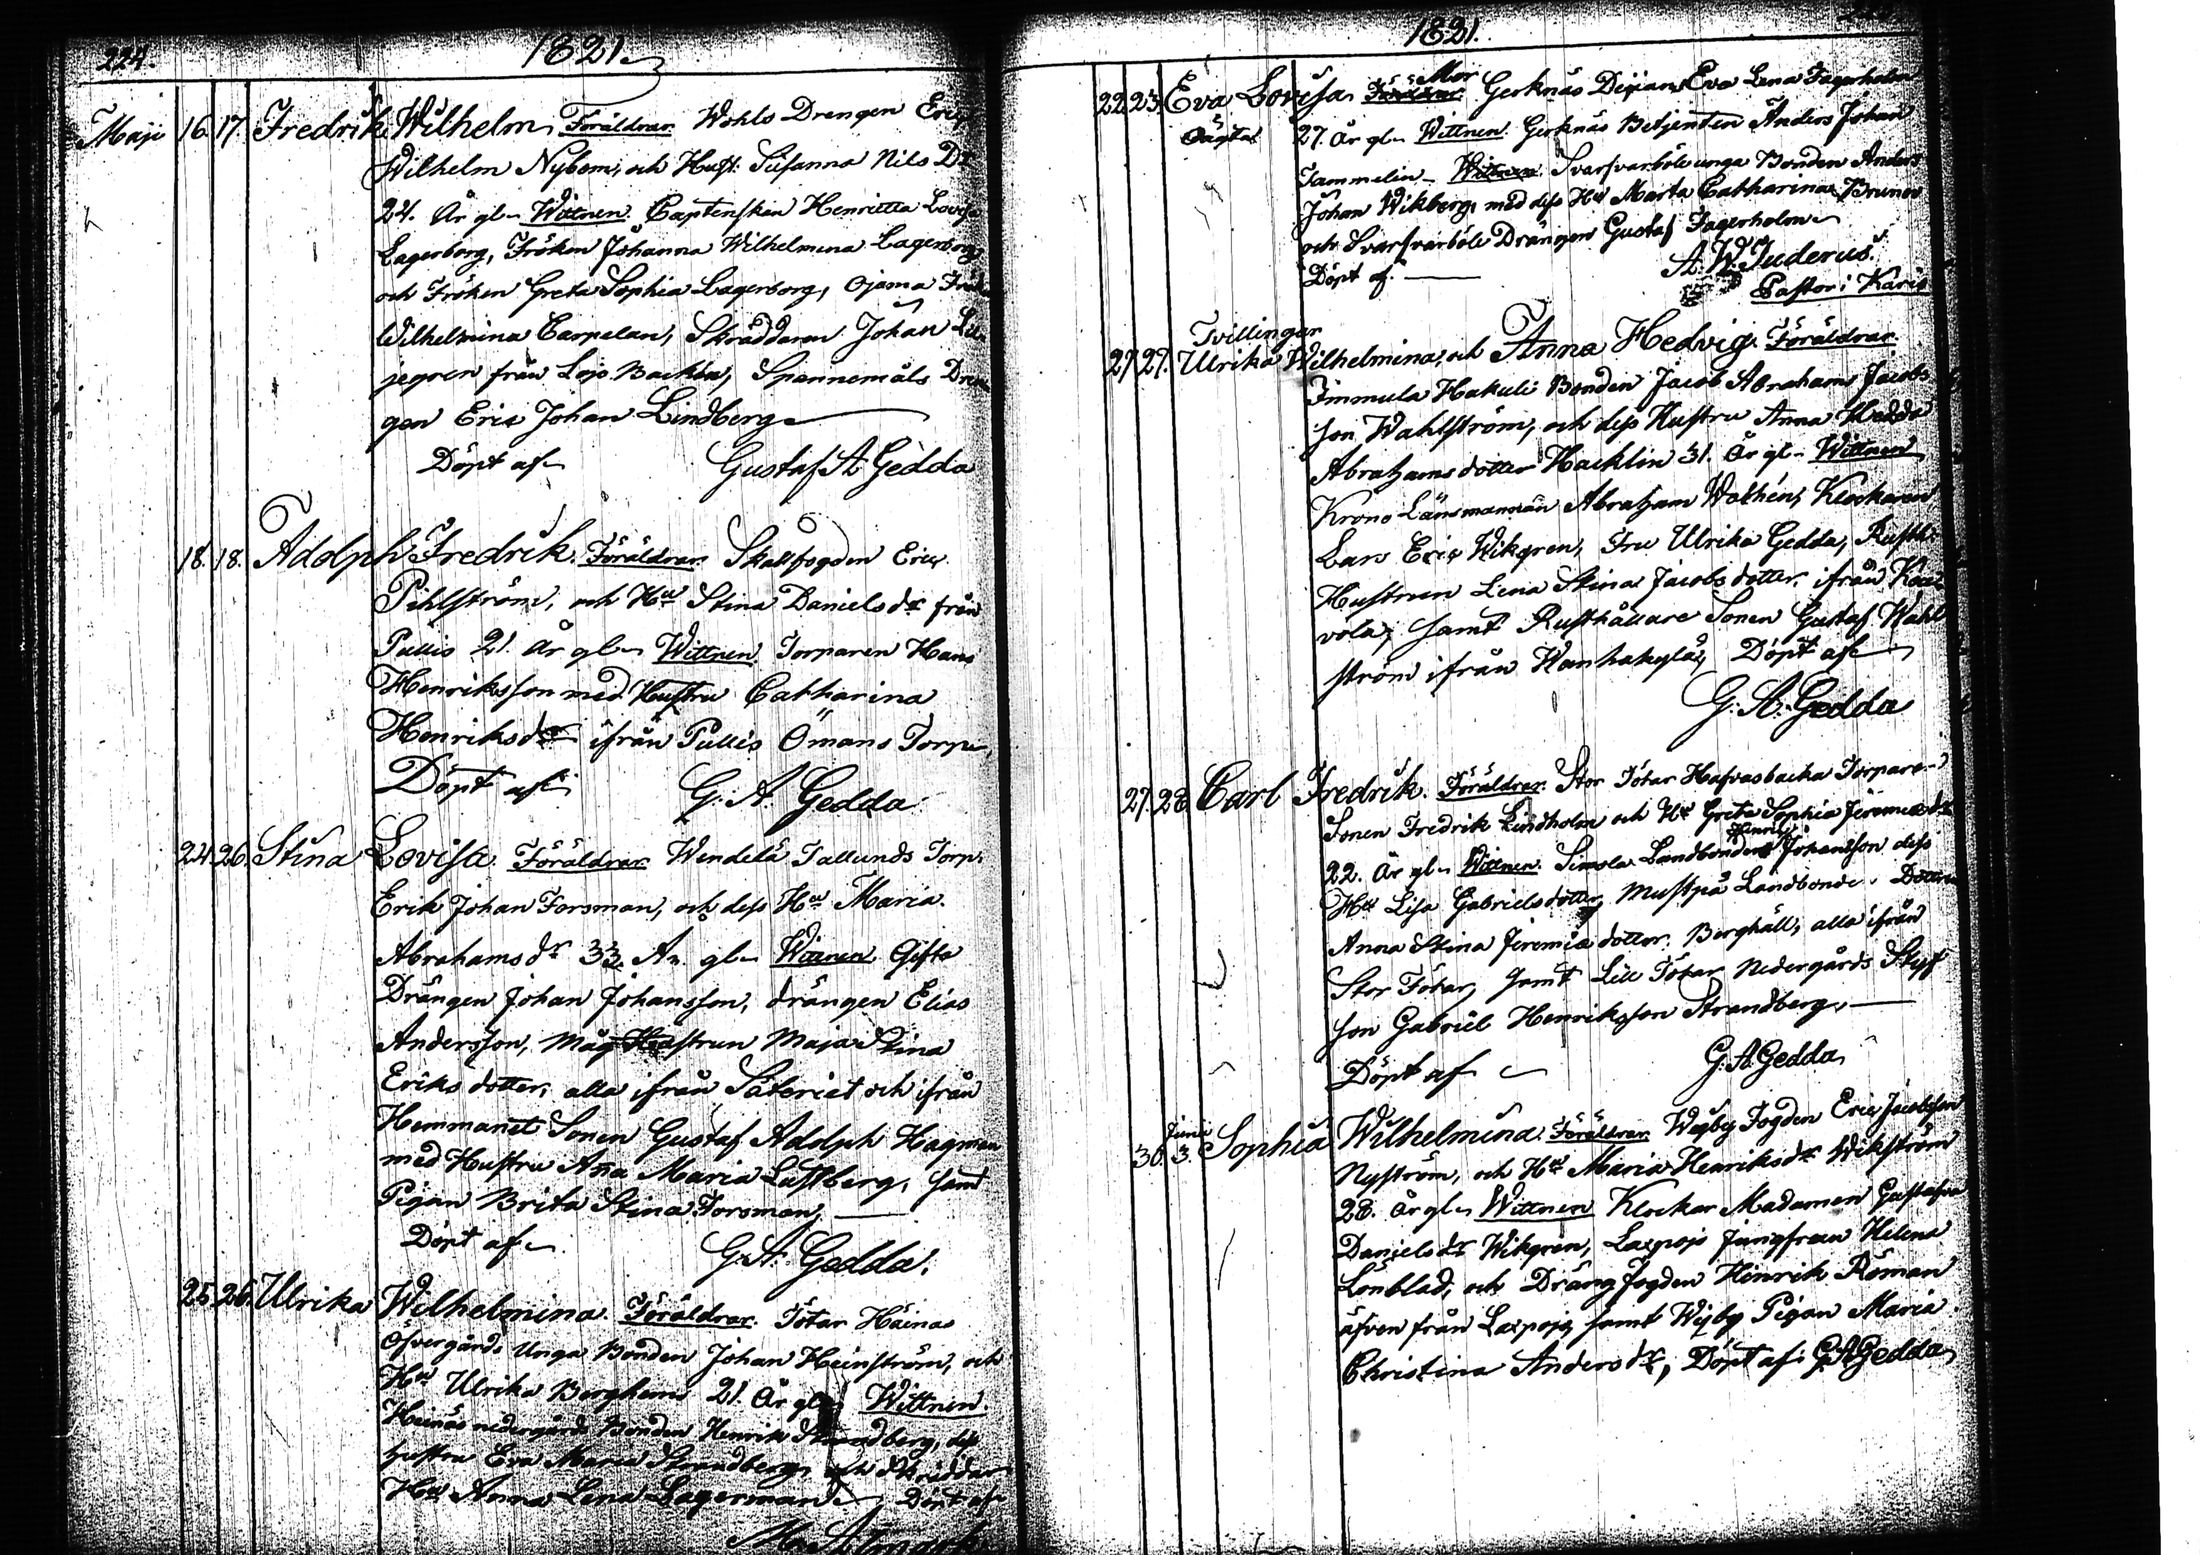 224.
1821.
Maji 16. 17. Fredrik Wilhelm. Föräldrar. Wohls Drengen Eric
Wilhelm Nybom, och Hust: Susanna Nils Dr
24. År gl– Wittnen. Captenskan Henrietta Lovisa
Lagerborg, Fröken Johanna Wilhelmina Lagerborg
och Fröken Greta Sophia Lagerborg, Ojama
Wilhelmina Carpelan, Skräddaren Johan Lil-
jegren från Lojo Backa, Spennemåls Dren-
gen Eric Johan Lindberg
Döpt af Gustaf A Gedda
18. 18. Adolph Fredrik. Föräldrar. Skallfogden Eric
Pihlström, och Hu Stina Daniels dr från
Pullis 21. År gl– Wittnen. Torparen Hans
Henriksson med Hustru Catharina
Henriks dr ifrån Pullis Ömans Torp,
Döpt af G. A. Gedda.
24. 26. Stina Lovisa. Föräldrar. Wendelä Tallunds Torp.
Erik Johan Forsman, och dess Hu Maria
Abrahams dr 33. År. gl– Wittnen. Gifta
Drängen Johan Johansson, drängen Elias
Andersson, Måg Hustrun Maja Stina
Eriks dotter, alla ifrån Säteriet och ifrån
Hemmanet Sonen Gustaf Adolph Hagman
med Hustru Anna Maria Lustberg, samt
Pigan Brita Stina Forsman,
Döpt af G. A. Gedda.
25. 26. Ulrika Wilhelmina. Föräldrar. Tötar Häinas
Öfvergårds Unga Bonden Johan Heinström, och
Hu Ulrika Berghem 21. År gl– Wittnen.
Heinäs nedergårds Bonden Henrik Strandberg, dess
hustru Eva Maria Strandberg, och Skräddar
Hu Anna Lena Lagerman Döpt af
1821.
22. 23. Eva Lovisa Föräldrar Mor Gerknäs Pigan Eva Lena Fagerholm
Oägta 27. År gl– Wittnen. Gerknäs Betjenten Anders Johan
Tammelin – Wittnen. Svarfvarböle unga Bonden Anders
Johan Wikberg, med dess Hu Marta Catharina Bruner
och Svarfvarböle Drängen Gustaf Fagerholm
Döpt af A. W. Juderus.
Pastor i Karis
Tvillingar
27. 27. Ulrika Wilhelmina, och Anna Hedvig. Föräldrar.
Immula Hakuli Bonden Jacob Abrahams Jacobs
son Wahlström, och dess Hustru Anna Hedda
Abrahams dotter Hacklin 31. År gl– Wittnen
Krono Länsmannen Abraham Wathén, Klockaren
Lars Eric Wikgren, Fru Ulrika Gedda, Rusth.
Hustrun Lena Stina Jacobs dotter, ifrån
vola, samt Rusthållare Sonen Gustaf Wahl
ström ifrån Wanhakylä, Döpt af
G. A. Gedda
27. 28. Carl Fredrik. Föräldrar. Stor Tötar Hafvasbacka Torpare
Sonen Fredrik Lindholm och Hu Greta Sophia Jeremiæ dr
22. År gl– Wittnen. Simola Landbonden Henric Johansson dess
Hu Lisa Gabriels dotter, Mustpä Landbonde Dottren
Anna Stina Jeremiæ dotter Berghäll, alla ifrån
Stor Tötar, samt Lill Tötar Nedergårds Styf
son Gabriel Henriksson Strandberg,
Döpt af G. A. Gedda
Junii
30. 3. Sophia Wilhelmina. Föräldrar. Wejby Fogden Eric Jacobsson
Nyström, och Hu Maria Henriks dr Wikström
28. År gl– Wittnen. Klockar Madamen Gustafva
Daniels dr Wikgren, Laxpojo Jungfrun Helena
Lönblad, och Dräng fogden Hinrik Röman
äfven från Laxpojo, samt Wejby Pigan Maria
Christina Anders dr, Döpt af G A Gedda